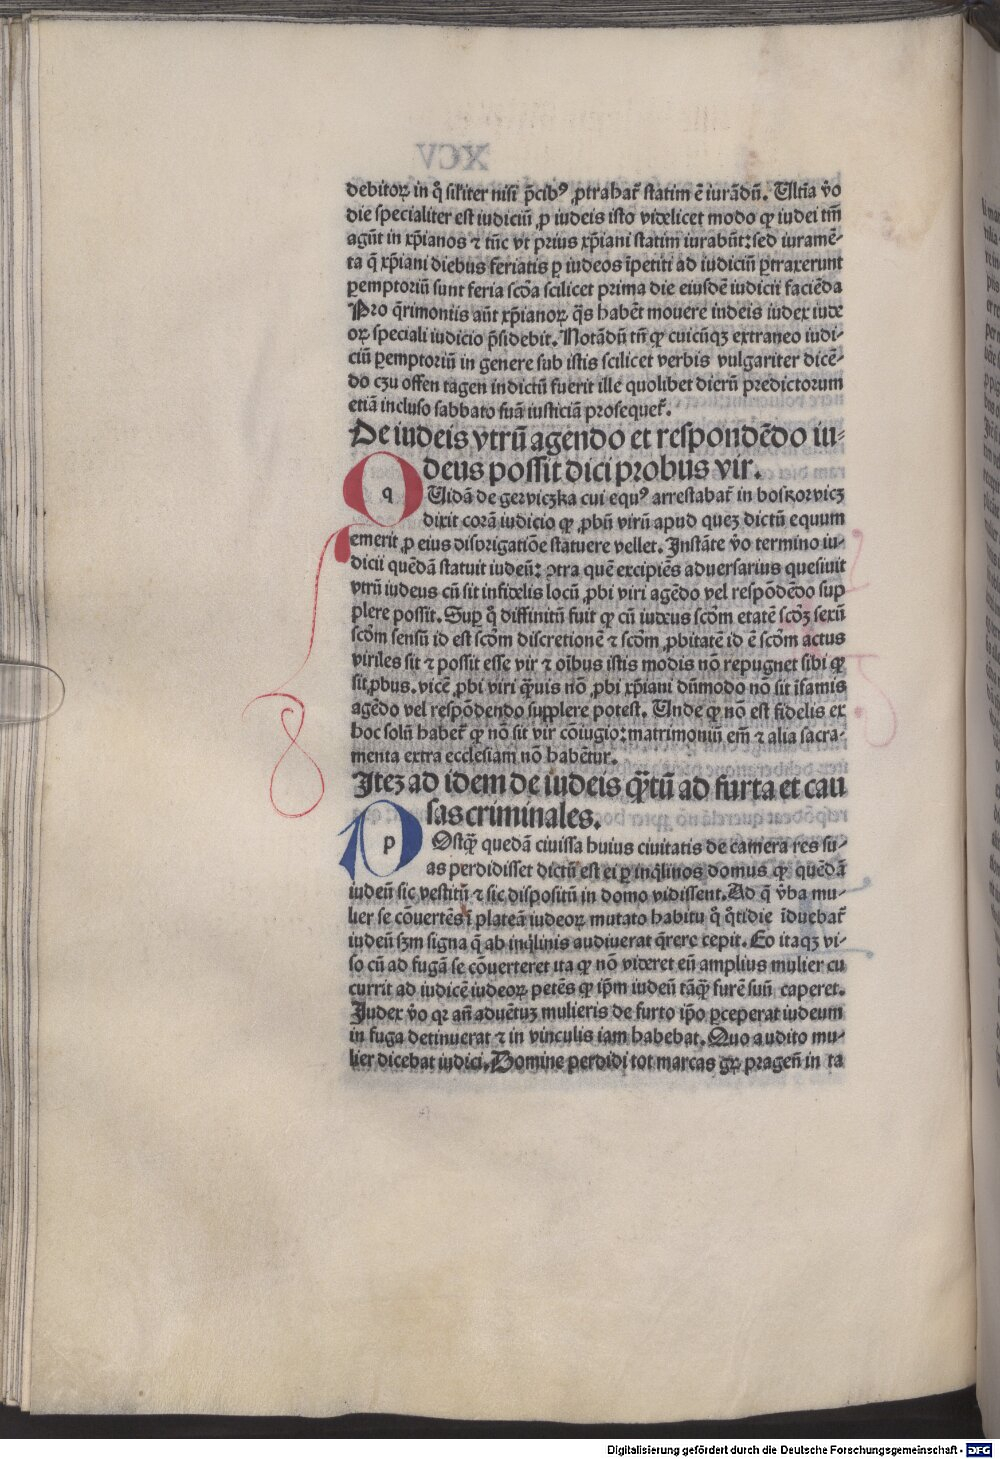 debitoꝝ in q̊ sil'iter nisi p̄cibꝰ ꝓtrahat᷑ statim ē iurādū. Ultīa v̊o
die specialiter est iudiciū ꝓ iudeis isto videlicet modo ꝙ iudei tm̄
agūt in xp̄ianos ⁊ tūc vt prius xp̄iani statim iurabūt: sed iuramē-
ta q̄ xp̄iani diebus feriatis ꝑ iudeos īpetiti ad iudiciū ꝑtraxerunt
ꝑemptoriū sunt feria scd̄a scilicet prima die eiusdē iudicii faciēda
Pro q̄rimoniis aūt xp̄ianoꝝ q̄s habēt mouere iudeis iudex iude
oꝝ speciali iudicio p̄sidebit. Notādū tn̄ ꝙ cuicūqꝫ extraneo iudi-
ciū ꝑemptoriū in genere sub istis scilicet verbis vulgariter dicē-
do czu offen tagen indictū fuerit ille quolibet dierū predictorum
etiā incluso sabbato suā iusticiā prosequet᷑.
De iudeis vtrū agendo et respondēdo iu-
deus possit dici probus vir.
q Uidā de gerviczka cui equꝰ arrestabat᷑ in boskorvicz
dixit corā iudicio ꝙ ꝓbū virū apud quez dictū equum
emerit ꝓ eius disbrigatiōe statuere vellet. Instāte v̊o termino iu-
dicii quēdā statuit iudeū: ꝯtra quē excipiēs aduersarius quesiuit
vtrū iudeus cū sit infidelis locū ꝓbi viri agēdo vel respōdēdo sup
plere possit. Suꝑ q̊ diffinitū fuit ꝙ cū iudeus scd̄m etatē scd̄ꝫ sexū
scd̄m sensū id est scd̄m discretionē ⁊ scd̄m ꝓbitatē id ē scd̄m actus
viriles sit ⁊ possit esse vir ⁊ oībus istis modis nō repugnet sibi ꝙ
sit ꝓbus. vicē ꝓbi viri q̄uis nō ꝓbi xp̄iani dūmodo nō sit īfamis
agēdo vel respōdendo supplere potest. Unde ꝙ nō est fidelis ex
hoc solū habet᷑ ꝙ nō sit vir coiugio: matrimoniū em̄ ⁊ alia sacra-
menta extra ecclesiam nō habētur.
Iteꝫ ad idem de iudeis q̄ꝫtū ad furta et cau
sas criminales.
p Ostq̄ꝫ quedā ciuissa huius ciuitatis de camera res su-
as perdidisset dictū est ei ꝑ inq̇linos domus ꝙ quēdā
iudeū sic vestitū ⁊ sic dispositū in domo vidissent. Ad q̄ v̊ba mu-
lier se cōuertēs ī plateā iudeoꝝ mutato habitu q̊ q̊tidie īduebat᷑
iudeū sꝫm signa q̄ ab inq̇linis audiuerat q̄rere cepit. Eo itaqꝫ vi-
so cū ad fugā se cōuerteret ita ꝙ nō videret eū amplius mulier cu
currit ad iudicē iudeoꝝ petēs ꝙ ip̄m iudeū tāq̄ꝫ furē suū caperet.
Iudex v̊o qꝛ añ aduētuꝫ mulieris de furto ip̄o ꝑceperat iudeum
in fuga detinuerat ⁊ in vinculis iam habebat. Quo audito mu-
lier dicebat iudici. Domine perdidi tot marcas gꝝ pragen̄ in ta
Digitalisierung gefördert durch die Deutsche Forschungsgemeinschaft - DFG